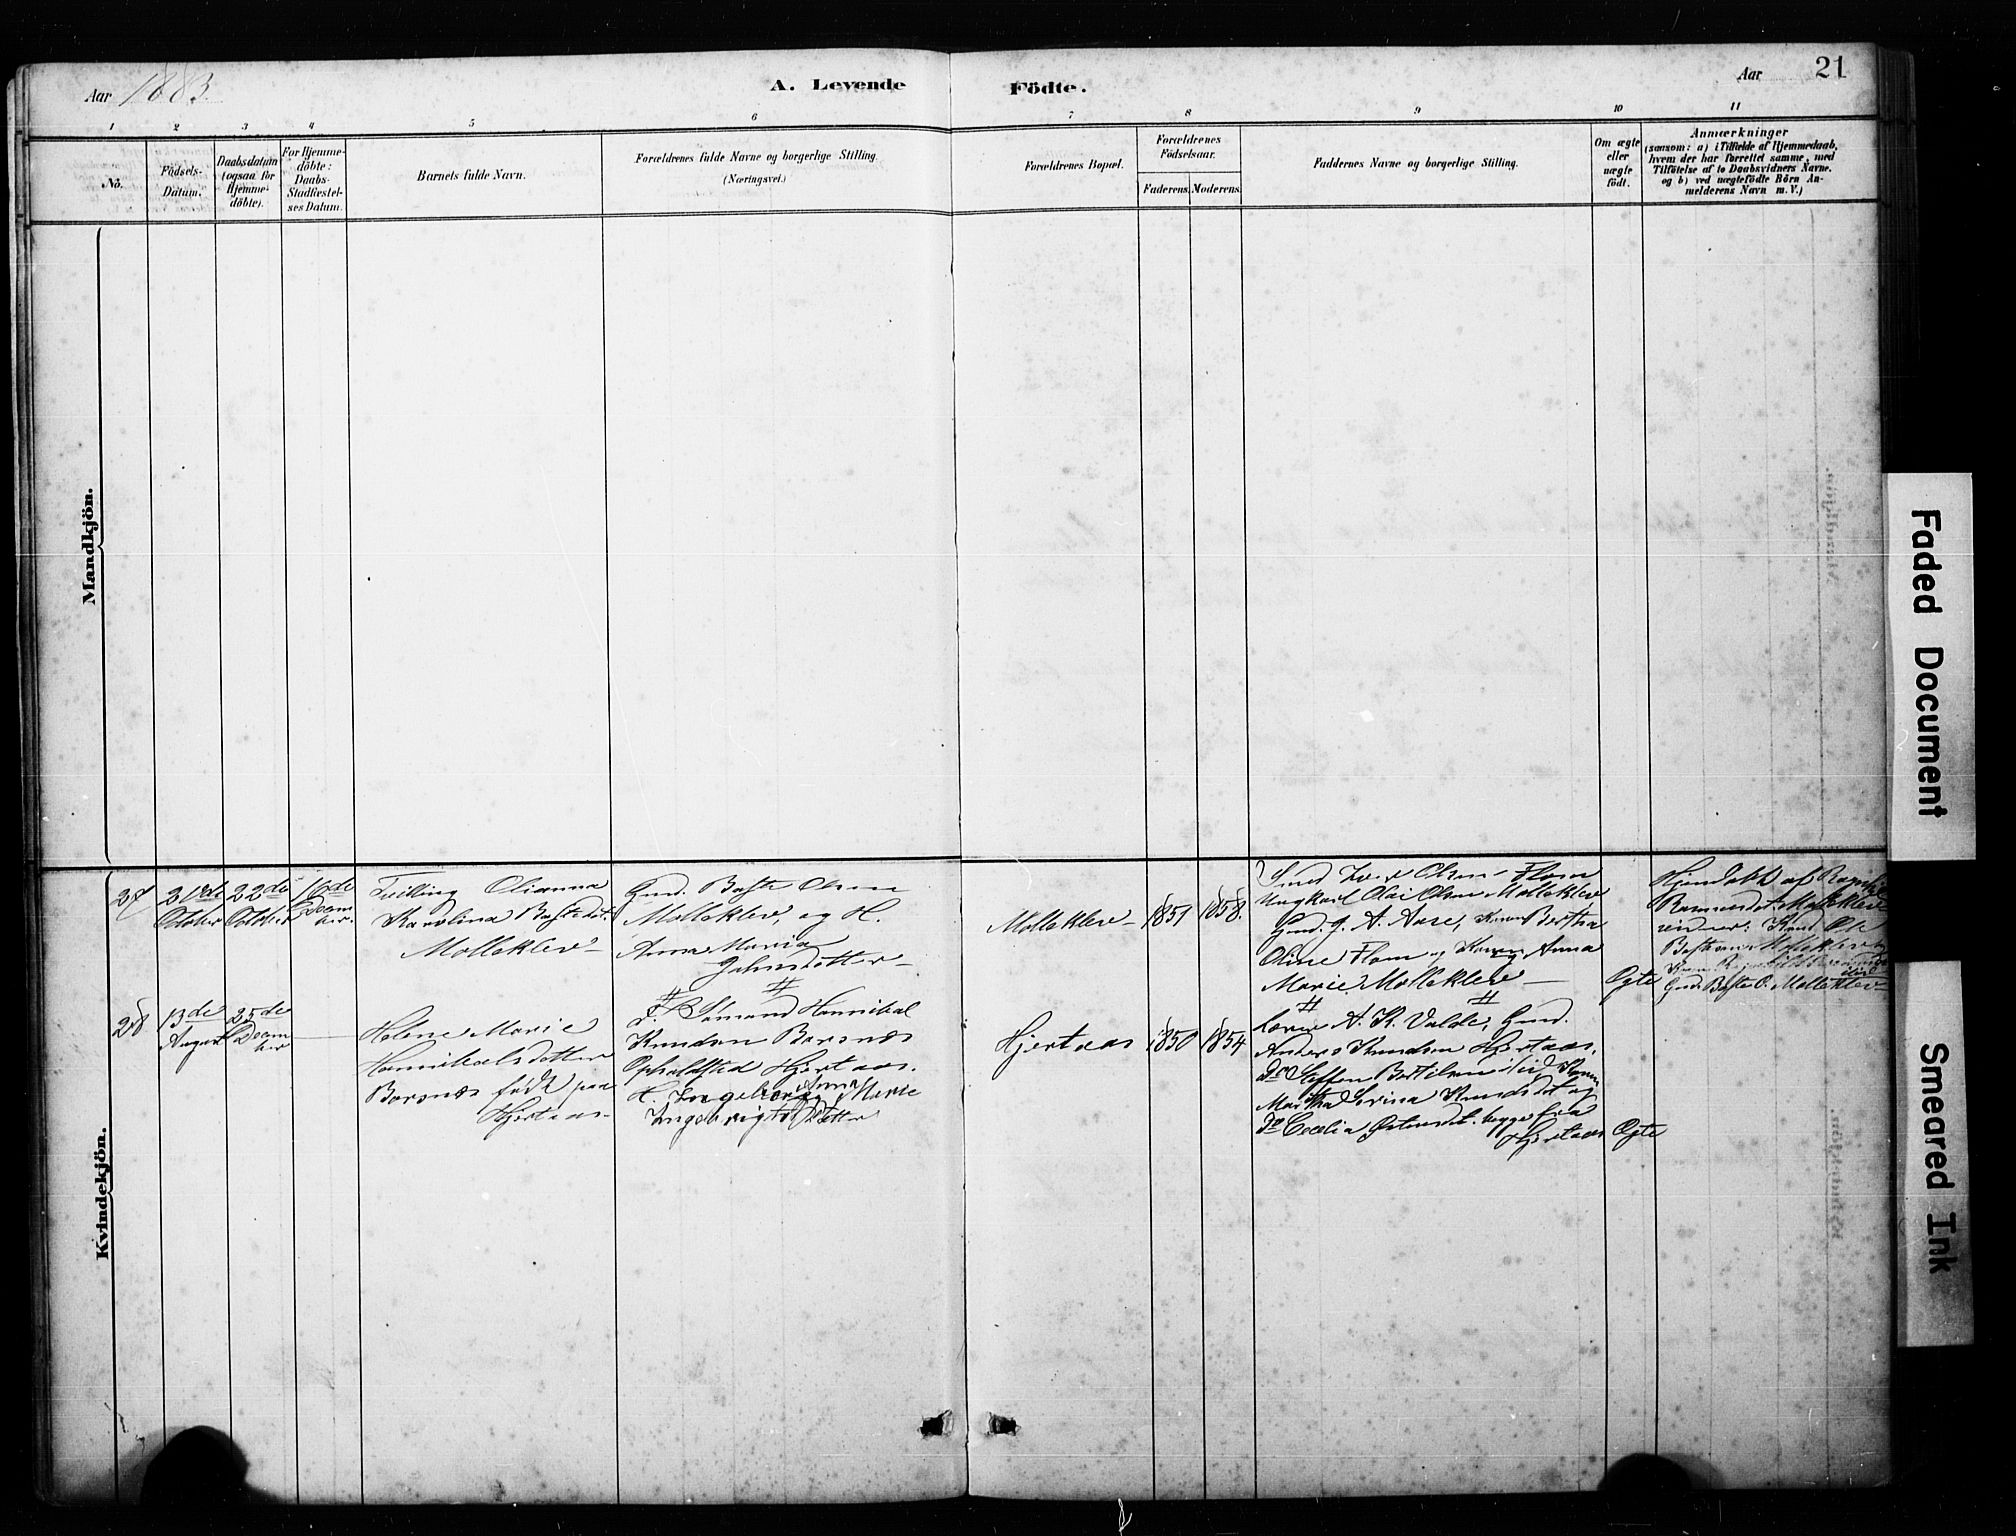 Aar 1883.
A. Levende
Födte.
Aar
21
1 2 3 4 5 6 7 8 9 10 11
No.
Födsels-
Datum.
Daabsdatum
(ogsaa for
Hjemme-
döbte).
For Hjemme-
döbte:
Daabs-
Stadfæstel-
ses Datum.
Barnets fulde Navn.
Forældrenes fulde Navne og borgerlige Stilling.
(Næringsvei.)
Forældrenes Bopæl.
Forældrenes
Födselsaar.
Faderens.
Moderens.
Faddernes Navne og borgerlige Stilling.
Om ægte
eller
uægte
födt.
Anmærkninger
(saasom: a) i Tilfælde af Hjemmedaab,
hvem der har forrettet samme, med
Tilföielse af to Daabsvidners Navne.
og b) ved uægtefödte Börn An-
melderens Navn m. V.)
Mandkjön.
Kvindekjön.
27
21de
October
22de
October
16de
Decem
ber
Tvilling Olianna
Karolina Bastesdt.
Molleklev
Gmd. Baste Olsen
Molleklev, og H.
Anna Maria
Molleklev
1851
1858.
Smed Olsen Floen
Ungkarl Olai Olsen Molleklev
Gmd. J. A. Aase, Konen Bertha
Oline Floen og Konen Anna
Marie Molleklev
Ægte
Hjemdøbt af
Molleklev
Ole
Molleklev
Gmd. Baste O. Molleklev
28
13de
August
25de
Decem
ber
Helene Marie
Hannibalsdotter
Barsnæs født paa
Hjertaas
F. Hannibal
Knudsen Barsnæs
Opholdsted Hjertaas.
H. Ingeborg Anna Marie
Ingebrigtsdotter
Hjertaas
1850
1854
Lærer A. K. Valde, Gmd.
Anders Knudsen Hjertaas,
Do Steffen Bottilsen
Martha Serina Knudsdt og
Do Cecelia begge fra
Hjertaas
Ægte
Faded Document
Smeared Ink